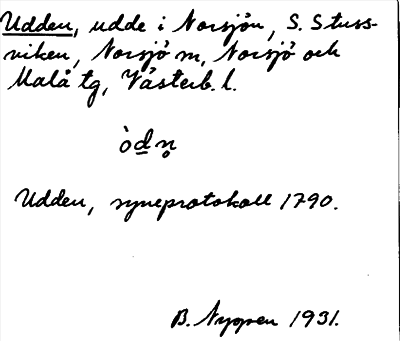 Udden, udde i Norsjön, S. Stuss-
viken, Norsjö m, Norsjö och
Malå tg, Västerb. l.
òdn̥
Udden, syneprotokoll 1790.
B. Nyppen 1931.